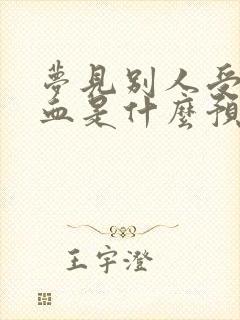 夢見別人受
血是什麼預
王宇澄